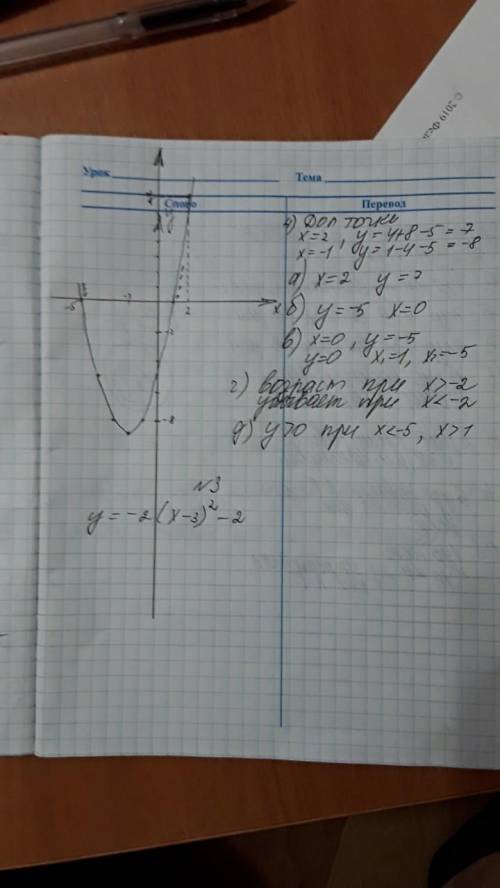 © 2019
Урок
Тема
Слово
Перевод
4) Доп точки
x=2, y=4+8-5=7
x=-1, y=1-4-5=-8
а) x=2 y=7
б) y=-5 x=0
в) x=0, y=-5
y=0 x₁=1, x₂=-5
г) возраст при x>-2
убывает при x<-2
д) y>0 при x<-5, x>1
-5
2
x
-8
№3
y=-2(x-3)²-2